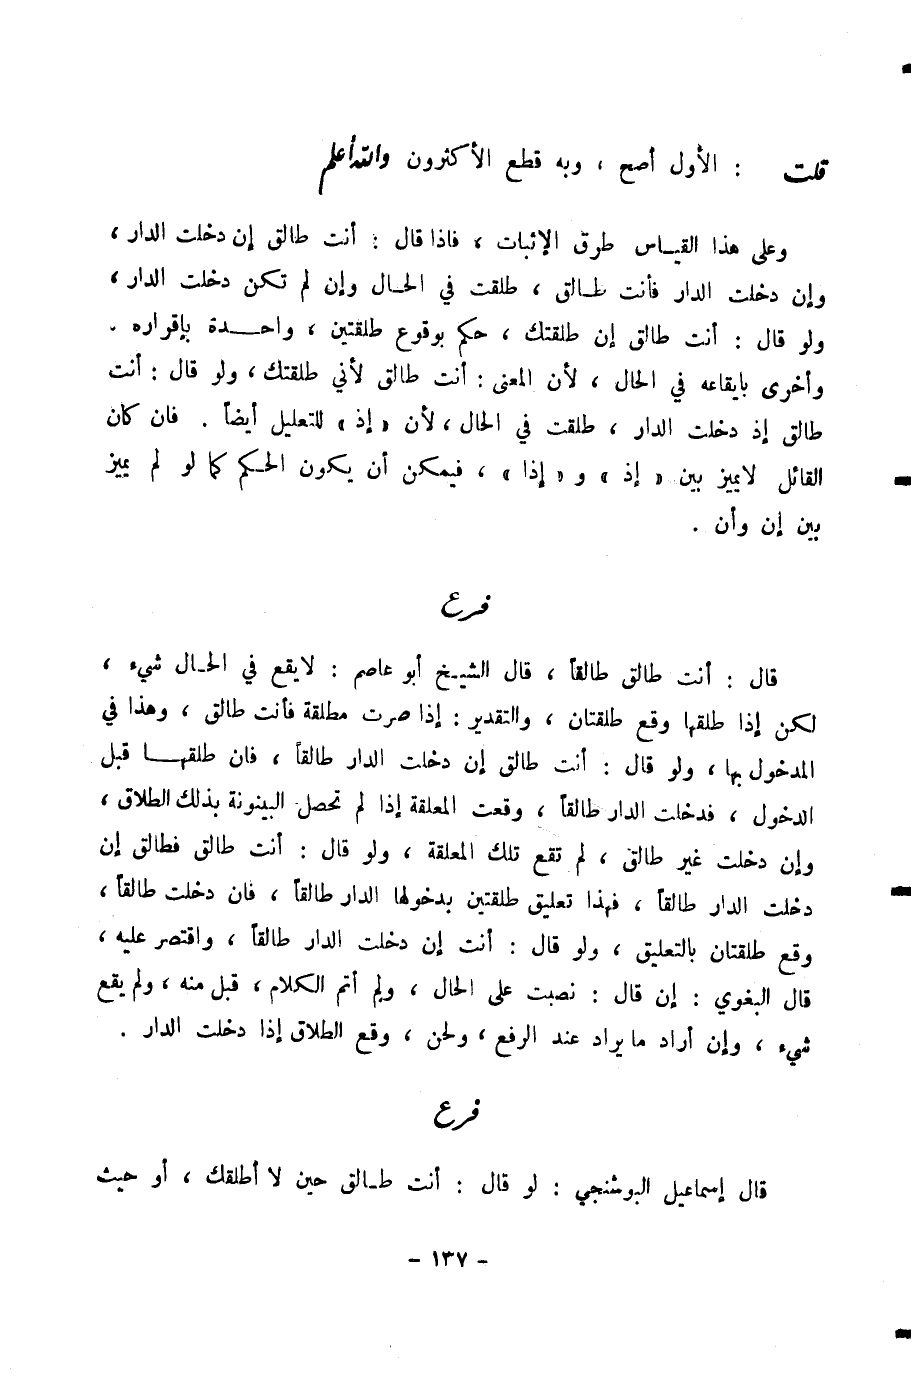 قلت : الأول أصح ، وبه قطع الأكثرون والله أعلم
وعلى هذا القيـاس طرق الإثبات ، فاذا قال : أنت طالق إن دخلت الدار ،
وإن دخلت الدار فأنت طـالق ، طلقت في الحـال وإن لم تكن دخلت الدار ،
ولو قال : أنت طالق إن طلقتك ، حكم بوقوع طلقتين ، واحـــدة بإقراره .
وأخرى بايقاعه في الحال ، لأن المعنى : أنت طالق لأني طلقتك ، ولو قال : أنت
طالق إذ دخلت الدار ، طلقت في الحال ، لأن « إذ » للتعليل أيضاً . فان كان
القائل لايميز بين « إذ » و « إذا » ، فيمكن أن يكون الحـكم كما لو لم يميز
بين إن وأن .
فرع
قال : أنت طالق طالقاً ، قال الشيـخ أبو عاصم : لايقع في الحـال شيء ،
لكن إذا طلقها وقع طلقتان ، والتقدير : إذا صرت مطلقة فأنت طالق ، وهذا في
المدخول بها ، ولو قال : أنت طالق إن دخلت الدار طالقاً ، فان طلقهـــا قبل
الدخول ، فدخلت الدار طالقاً ، وقعت المعلقة إذا لم تحصل البينونة بذلك الطلاق ،
وإن دخلت غير طالق ، لم تقع تلك المعلقة ، ولو قال : أنت طالق فطالق إن
دخلت الدار طالقاً ، فهذا تعليق طلقتين بدخولها الدار طالقاً ، فان دخلت طالقاً ،
وقع طلقتان بالتعليق ، ولو قال : أنت إن دخلت الدار طالقاً ، واقتصر عليه ،
قال البغوي : إن قال : نصبت على الحال ، ولم أتم الكلام ، قبل منه ، ولم يقع
شيء ، وإن أراد ما يراد عند الرفع ، ولحن ، وقع الطلاق إذا دخلت الدار .
فرع
قال إسماعيل البوشنجي : لو قال : أنت طـالق حين لا أطلقك ، أو حيث
- ١٣٧ -